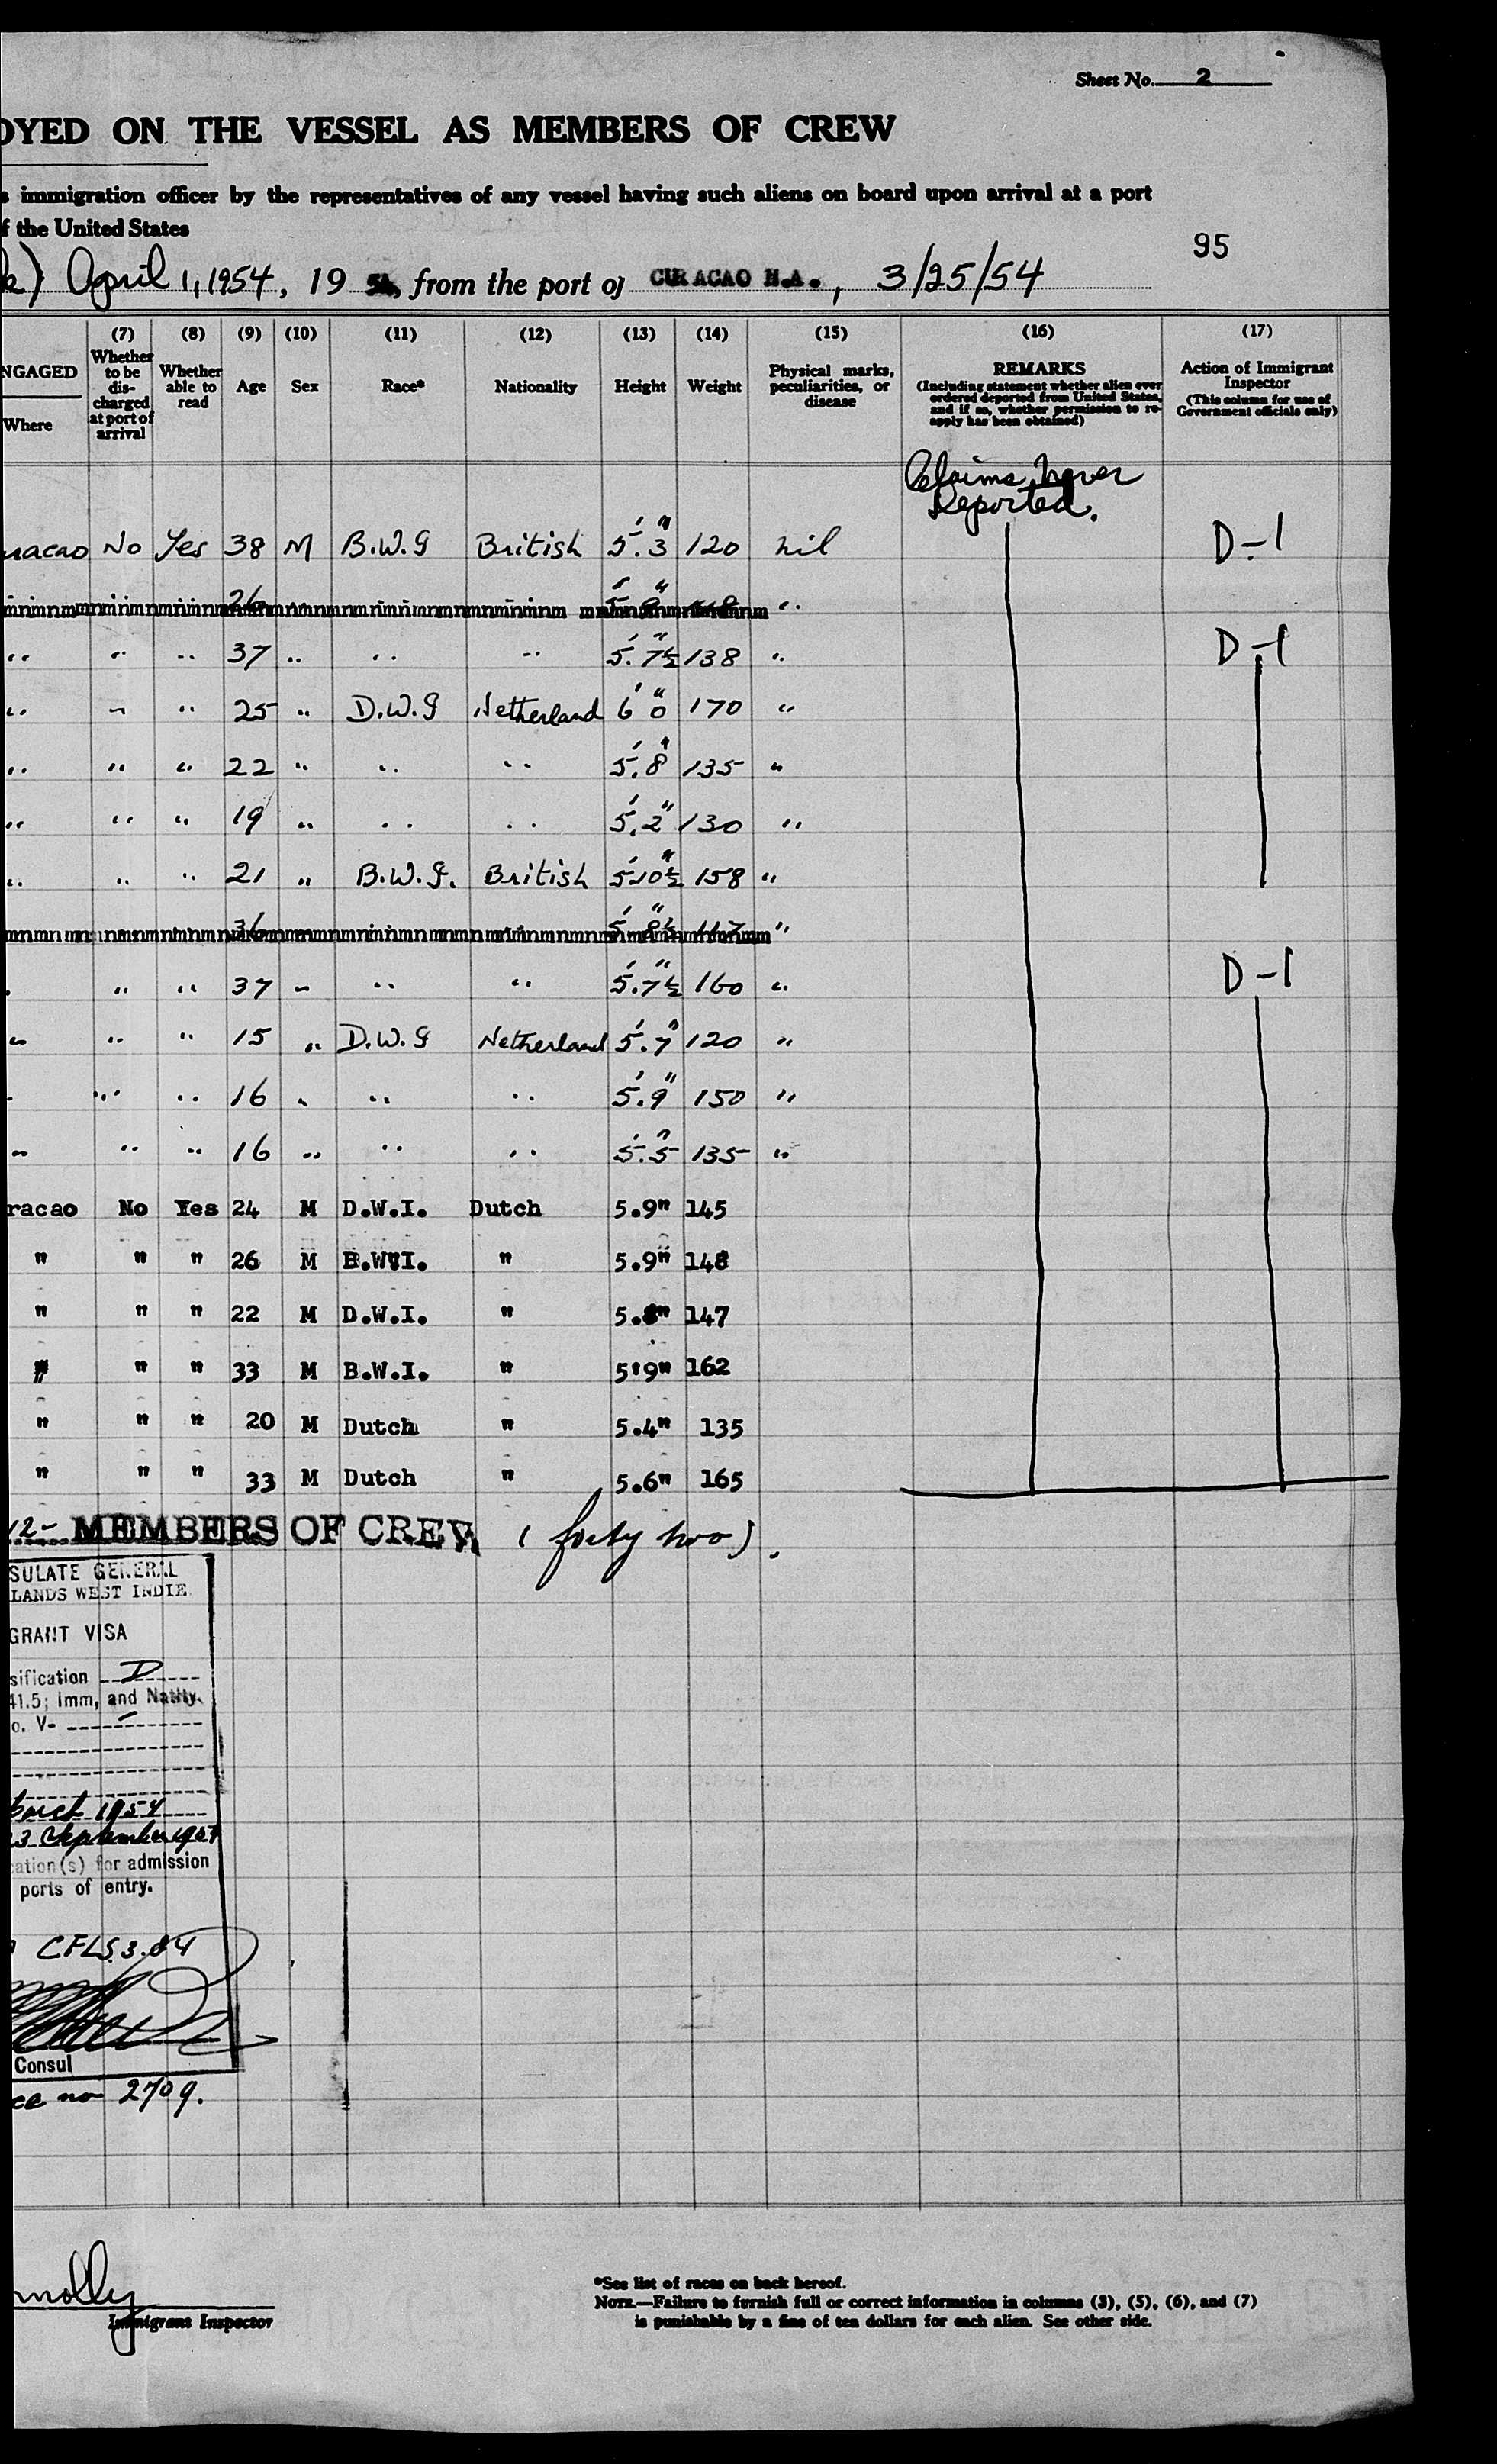 Sheet No. 2
OYED ON THE VESSEL AS MEMBERS OF CREW
s immigration officer by the representatives of any vessel having such aliens on board upon arrival at a port
f the United States
95
k) April 1, 1954, 19 54, from the port of CURACAO N.A., 3/25/54
(7) (8) (9) (10) (11) (12) (13) (14) (15) (16) (17)
NGAGED
Where
Whether to be dis- charged at port of arrival
Whether able to read
Age
Sex
Race*
Nationality
Height
Weight
Physical marks, peculiarities, or disease
REMARKS
(Including statement whether alien ever ordered deported from United States, and if so, whether permission to re- apply has been obtained)
Action of Immigrant Inspector
(This column for use of Government officials only)
Claims Never
Deported.
uracao No Yes 38 M B.W.I British 5'.3" 120 nil D-1
26 5' "
" " " 37 " " " 5'.7½" 138 " D-1
" " " 25 " D.W.I Netherland 6' 0" 170 "
" " " 22 " " " 5'.8" 135 "
" " " 19 " " " 5'.2" 130 "
" " " 21 " B.W.I. British 5'10½" 158 "
36 5' 8½" "
" " 37 " " " 5'.7½" 160 " D-1
" " " 15 " D.W.I Netherland 5'.7" 120 "
" " 16 " " " 5'.9" 150 "
" " " 16 " " " 5'.5" 135 "
racao No Yes 24 M D.W.I. Dutch 5.9" 145
" " " 26 M B.W.I. " 5.9" 148
" " " 22 M D.W.I. " 5.8" 147
" " " 33 M B.W.I. " 5'9" 162
" " " 20 M Dutch " 5.4" 135
" " " 33 M Dutch " 5.6" 165
12- MEMBERS OF CREW (forty two).
SULATE GENERAL
LANDS WEST INDIE
GRANT VISA
sification D
41.5; Imm, and Natlty.
o. V-
1954
23 September 1954
cation(s) for admission
ports of entry.
Consul
ce no 2709.
nnolly
Immigrant Inspector
*See list of races on back hereof.
NOTE.—Failure to furnish full or correct information in columns (3), (5), (6), and (7)
is punishable by a fine of ten dollars for each alien. See other side.